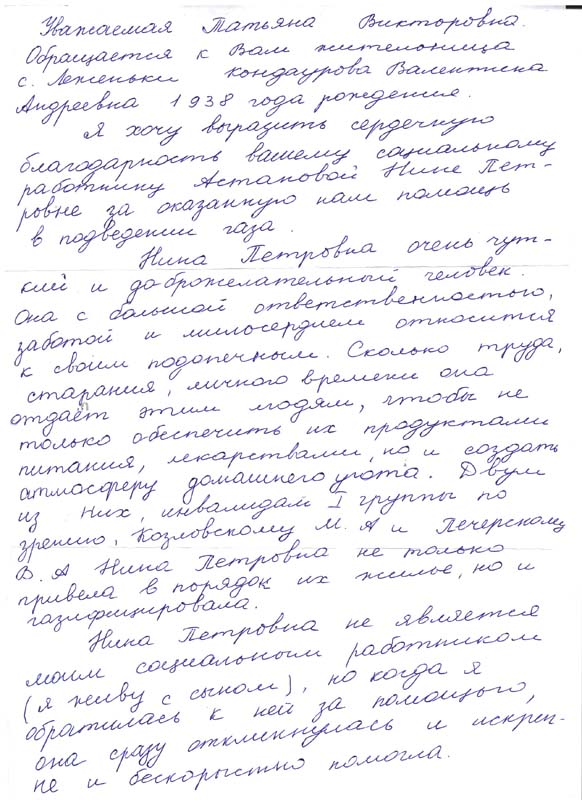 Уважаемая Татьяна Викторовна.
Обращается к Вам жительница
с. Леженьки Кондаурова Валентина
Андреевна 1938 года рождения.
Я хочу выразить сердечную
благодарность вашему социальному
работнику Астаповой Нине Пет-
ровне за оказанную нам помощь
в подведении газа.
Нина Петровна очень чут-
кий и доброжелательный человек.
Она с большой ответственностью,
заботой и милосердием относится
к своим подопечным. Сколько труда,
старания, личного времени она
отдаёт этим людям, чтобы не
только обеспечить их продуктами
питания, лекарствами, но и создать
атмосферу домашнего уюта. Двум
из них, инвалидам I группы по
зрению, Козловскому М. А и Печерскому
В. А Нина Петровна не только
привела в порядок их жилье, но и
газифицировала.
Нина Петровна не является
моим социальным работником
(я живу с сыном), но когда я
обратилась к ней за помощью,
она сразу откликнулась и искрен-
не и бескорыстно помогла.